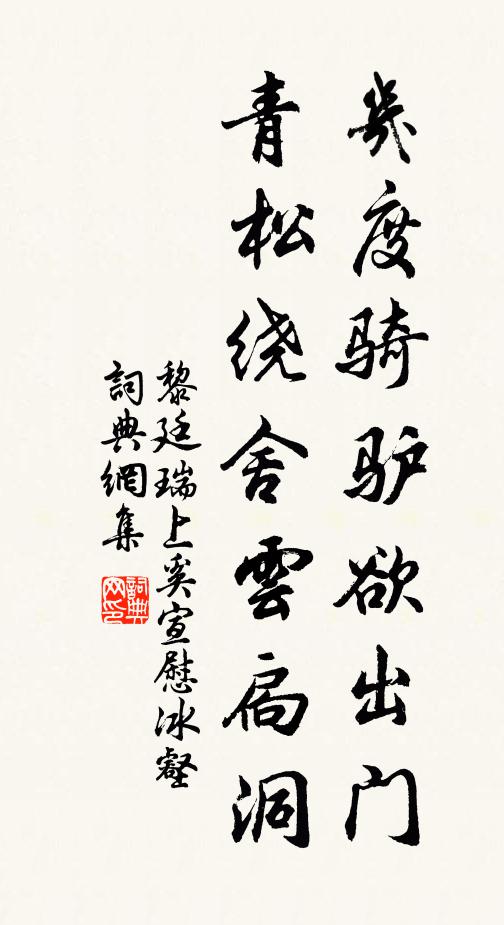 幾度骑驴欲出门
青松绕舍雲扃洞
黎廷瑞上奚宣慰冰壑
詞典網集
詞典